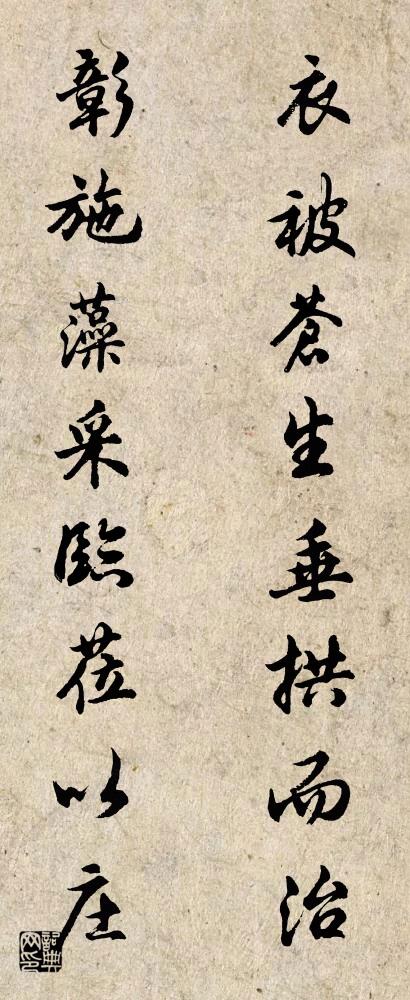 衣被苍生垂拱而治
彰施藻采临莅以庄